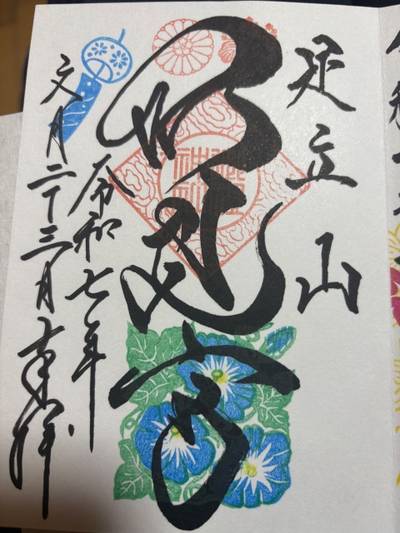 足立山
妙見宮
令和七年
文月二十三日奉拝